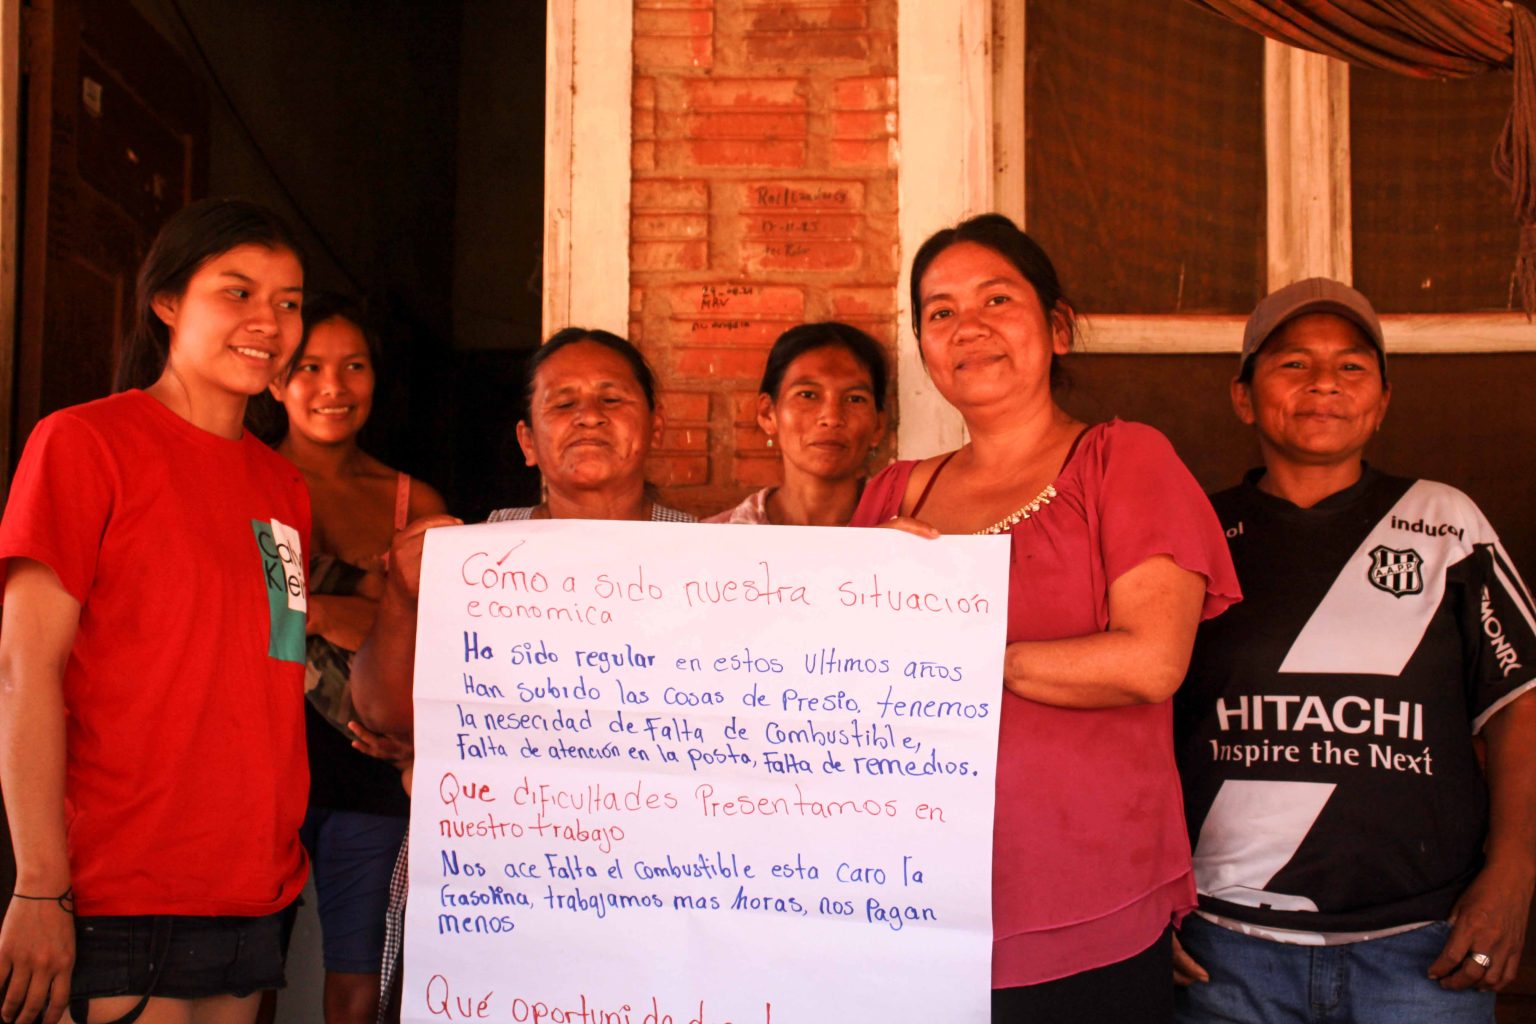 Cómo a sido nuestra situación
economica
Ha sido regular en estos ultimos años
Han subido las cosas de Presio, tenemos
la nesecidad de Falta de Combustible,
Falta de atención en la posta, Falta de remedios.
Que dificultades Presentamos en
nuestro trabajo
Nos ace Falta el combustible esta caro la
Gasolina, trabajamos mas horas, nos Pagan
menos
Qué
Calvin
Klein
inducol
A.A.P.P.
HITACHI
Inspire the Next
MAV